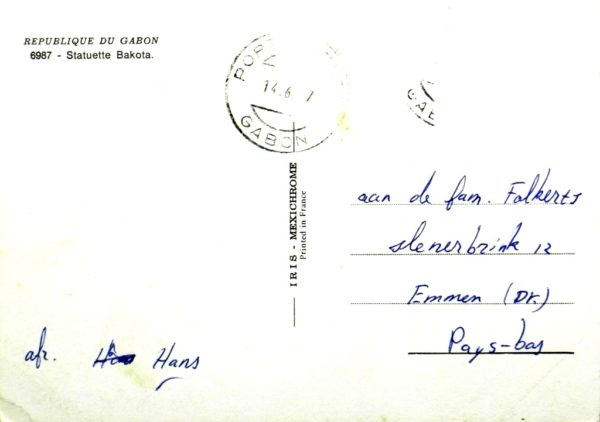 REPUBLIQUE DU GABON
6987 - Statuette Bakota.
14.6
GABON
IRIS - MEXICHROME
Printed in France
aan de fam. Folkerts
slenerbrink 12
Emmen (Dr.)
Pays-bas
afz. Hans